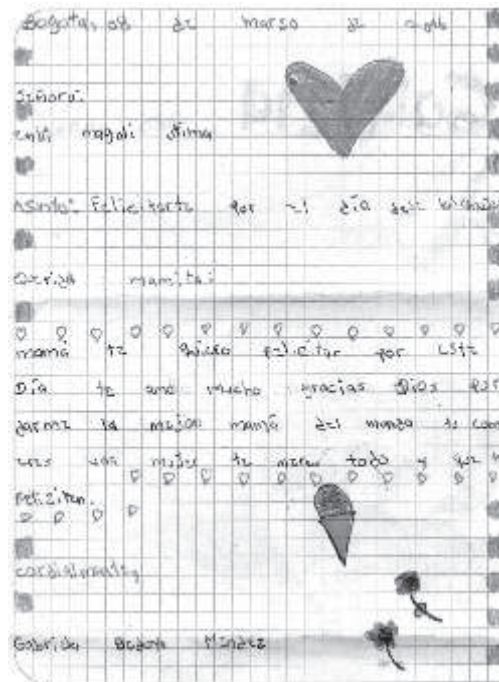 Bogotá, 08 de marzo de
Señora:
magali
Asunto: Felicitarte por el día de
Querida mamita:
mamá te quiero felicitar por este
Día te amo mucho gracias Dios por
darme la mejor mamá del
eres una mujer te mereces todo y que
feliciten.
cordialmente,
Gabriela Méndez